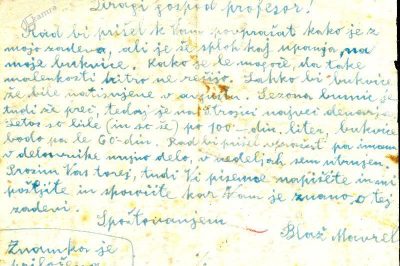 Dragi gospod profesor!
Rad bi prišel k Vam povprašat kako je z
mojo zadevo, ali je že sploh kaj upanja, na
moje bukvice. Kako je le mogoče, da take
malenkosti hitro ne rešijo. Lahko bi bukvice
že bile natisnjene v avgustu. Sezona
tudi že preč, tedaj je na Strojni največ denarja.
Letos so bile (in so še) po 100- din. liter, bukvice
bodo pa le 60-din. Rad bi prišel vprašat pa imam
v delovnike nujno delo, v nedeljah sem utrujen.
Prosim Vas torej, tudi Vi pismeno napišite in mi
pošljite in sporočite kar Vam je znano, o tej
zadevi.
Spoštovanjem
Blaž Mavrel
Znamka je
priložena